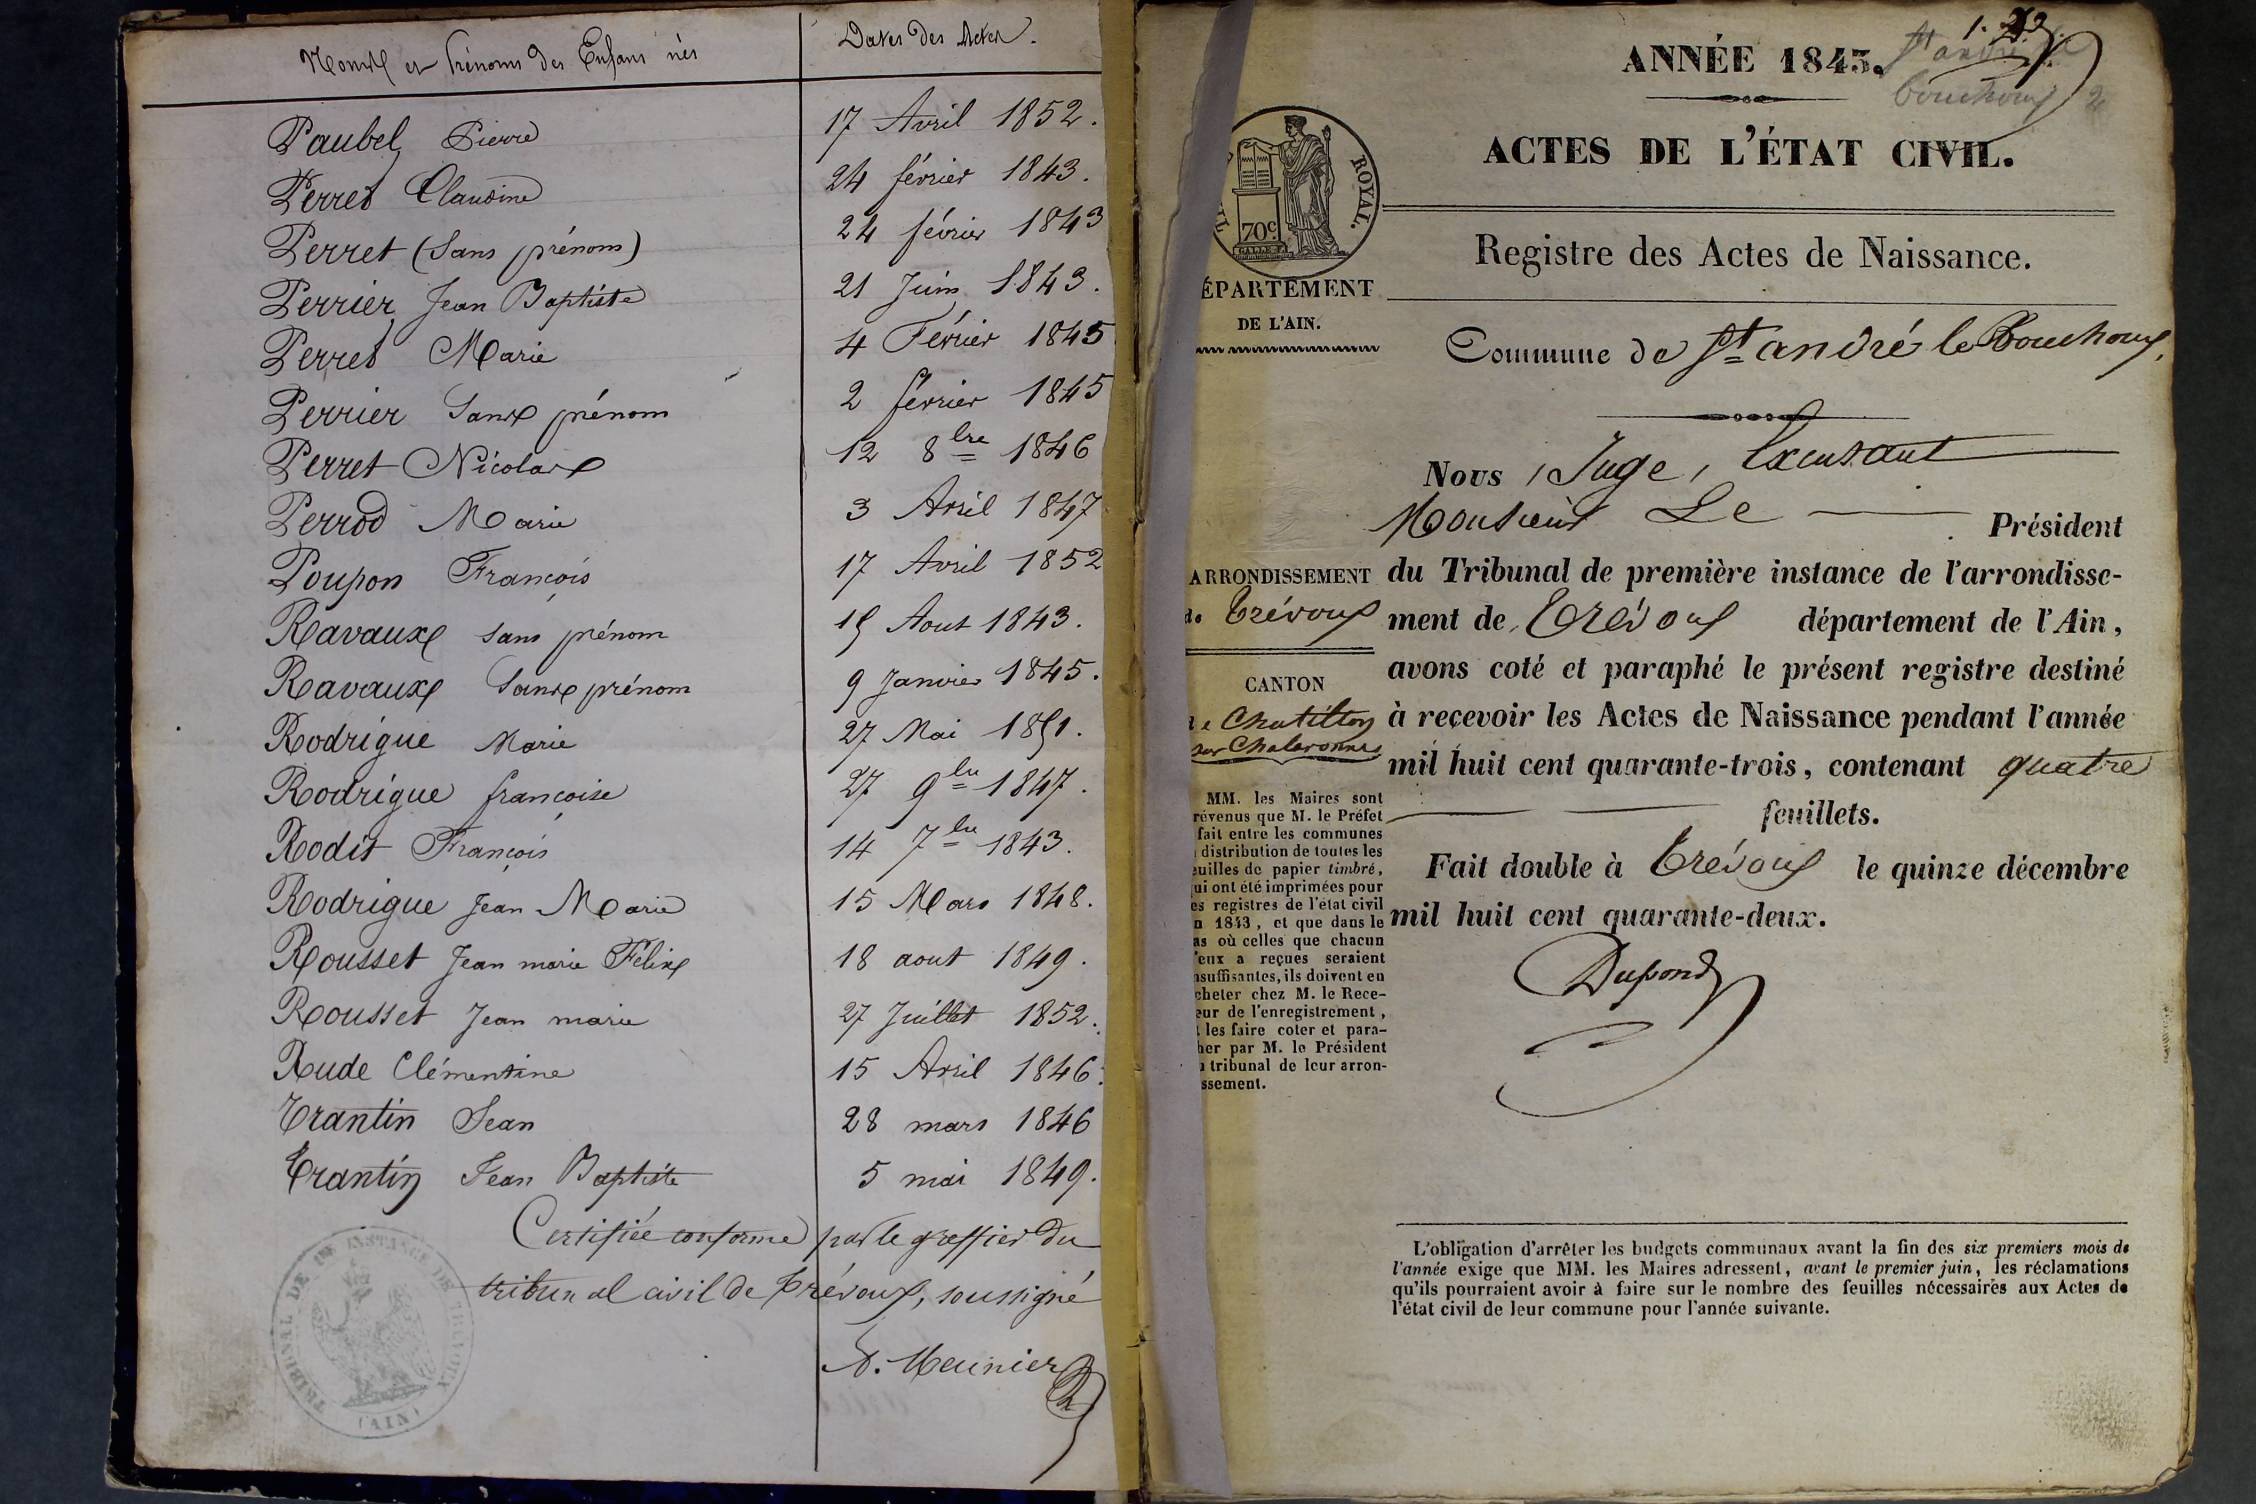 Noms et Prénoms des Enfans nés Dates des Actes.
Paubel Pierre 17 Avril 1852.
Perret Claudine 24 février 1843.
Perret (Sans prénom) 24 février 1843
Perrier Jean Baptiste 21 Juin 1843.
Perret Marie 4 Février 1845
Perrier Sans prénom 2 février 1845
Perret Nicolas 12 8bre 1846
Perrod Marie 3 Avril 1847
Poupon François 17 Avril 1852
Ravaux sans prénom 15 Aout 1843.
Ravaux Sans prénom 9 Janvier 1845.
Rodrigue Marie 27 Mai 1851.
Rodrigue françoise 27 9bre 1847.
Rodit François 14 7bre 1843.
Rodrigue Jean Marie 15 Mars 1848.
Rousset Jean marie Félix 18 aout 1849.
Rousset Jean marie 27 Juillet 1852.
Rude Clémentine 15 Avril 1846.
Trantin Jean 28 mars 1846
Trantin Jean Baptiste 5 mai 1849.
Certifiée conforme par le greffier du
tribunal civil de Trévoux, soussigné
Meunier
TRIBUNAL DE 1RE INSTANCE DE TREVOUX
(AIN)
ANNÉE 1843.
St andré le
bouchoux
ACTES DE L'ÉTAT CIVIL.
ROYAL.
70c.
Registre des Actes de Naissance.
ÉPARTEMENT
DE L'AIN.
Commune de St andré le Bouchoux,
Nous, Juge, Excusant
Monsieur Le Président
du Tribunal de première instance de l'arrondisse-
ment de Trévoux département de l'Ain,
avons coté et paraphé le présent registre destiné
à reçevoir les Actes de Naissance pendant l'année
mil huit cent quarante-trois, contenant quatre
feuillets.
Fait double à Trévoux le quinze décembre
mil huit cent quarante-deux.
Dupond
ARRONDISSEMENT
de Trévoux
CANTON
Chatillon
sur Chalaronne
MM. les Maires sont
révenus que M. le Préfet
fait entre les communes
distribution de toutes les
euilles de papier timbré,
ui ont été imprimées pour
es registres de l'état civil
n 1843, et que dans le
as où celles que chacun
'eux a reçues seraient
nsuffisantes, ils doivent en
cheter chez M. le Rece-
eur de l'enregistrement,
les faire coter et para-
her par M. le Président
u tribunal de leur arron-
ssement.
L'obligation d'arrêter les budgets communaux avant la fin des six premiers mois de
l'année exige que MM. les Maires adressent, avant le premier juin, les réclamations
qu'ils pourraient avoir à faire sur le nombre des feuilles nécessaires aux Actes de
l'état civil de leur commune pour l'année suivante.